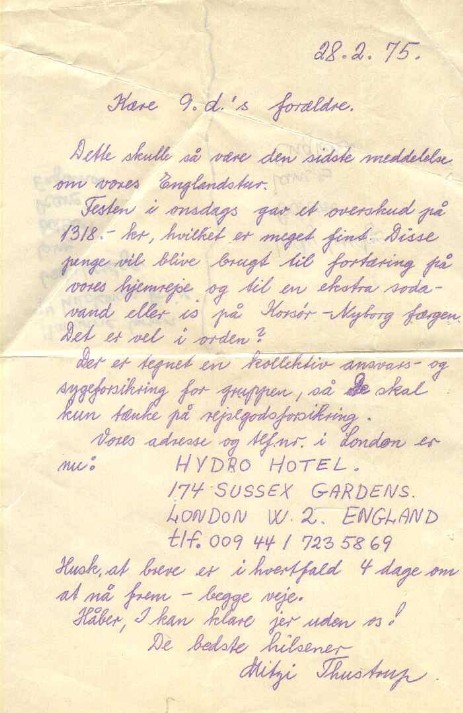 28.2.75.
Kære 9.d.'s forældre.
Dette skulle så være den sidste meddelelse
om vores Englandstur.
Festen i onsdags gav et overskud på
1318.- kr, hvilket er meget fint. Disse
penge vil blive brugt til fortæring på
vores hjemrejse og til en ekstra soda-
vand eller is på Korsør-Nyborg færgen.
Det er vel i orden?
Der er tegnet en kollektiv ansvars- og
sygeforsikring for gruppen, så De skal
kun tænke på rejsegodsforsikring.
Vores adresse og tlf.nr. i London er
nu: HYDRO HOTEL.
174 SUSSEX GARDENS.
LONDON W. 2. ENGLAND
tlf. 009 44 1 723 58 69
Husk, at breve er i hvertfald 4 dage om
at nå frem - begge veje.
Håber, I kan klare jer uden os!
De bedste hilsener
Mitzi Thustrup.